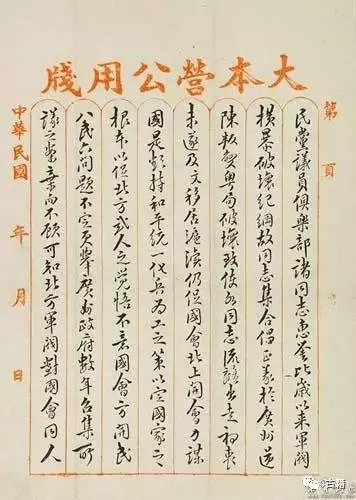 大本營公用牋
第 頁
民黨議員俱樂部諸同志惠鑒比歲以來軍閥
橫暴破壞紀綱故同志集合倡正義於廣州逆
陳叛變粵局破壞致使各同志流離出走初衷
未遂及文移居滬濱仍促國會北上開會力謀
國是持和平統一代兵為工之策以定國家之
根本以促北方武人之覺悟不意國會方開民
八民六問題不定廣州政府數年召集所
議之案棄而不顧可知北方軍閥對國會同人
中華民國 年 月 日